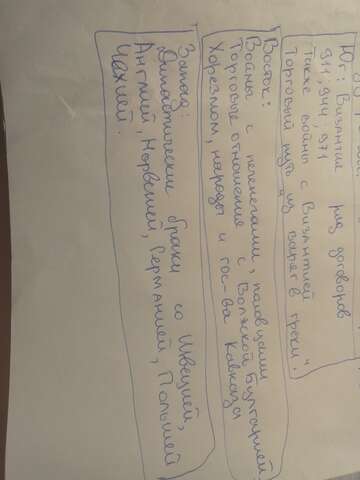 Юг: Византия ряд договоров
911, 944, 971
также войны с Византией
Торговый путь "из варяг в греки".
Восток:
Войны с печенегами, половцами
Торговые отношения с Волжской Булгарией
Хорезмом, народы и гос-ва Кавказа
Запад:
Династические браки со Швецией,
Англией, Норвегией, Германией, Польшей
Чехией.